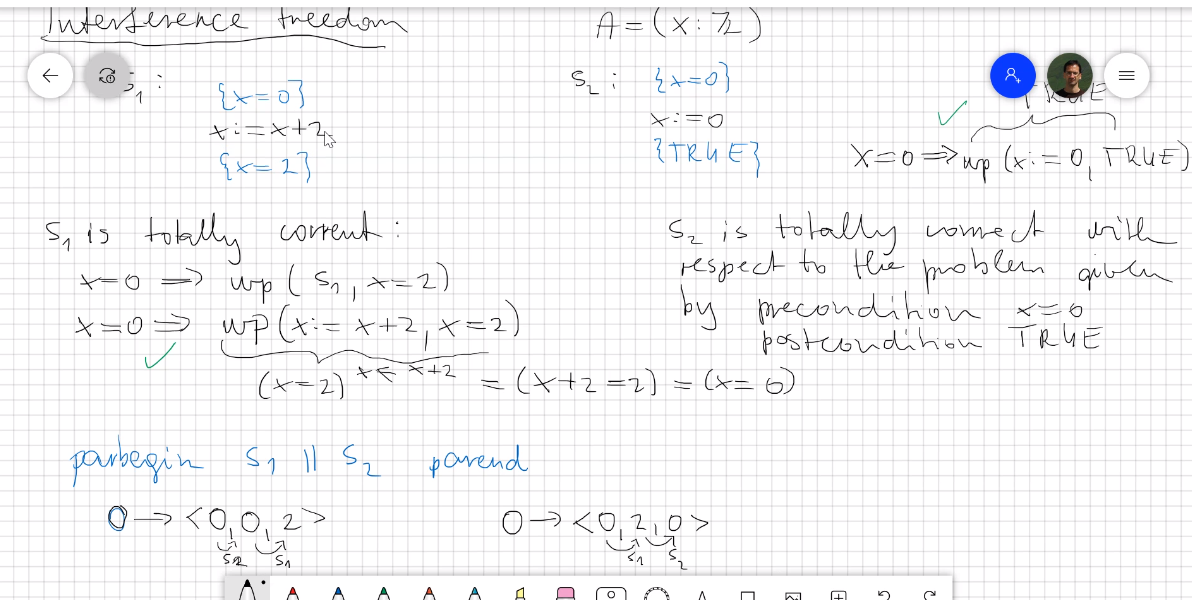 Interference freedom
A = (x: ℤ)
S₁:
{x=0}
x:=x+2
{x=2}
S₂:
{x=0}
x:=0
{TRUE}
TRUE
x=0 ⇒ wp(x:=0, TRUE)
S₁ is totally correct:
x=0 ⇒ wp(S₁, x=2)
x=0 ⇒ wp(x:=x+2, x=2)
(x=2)^{x←x+2} = (x+2=2) = (x=0)
S₂ is totally correct with
respect to the problem given
by precondition x=0
postcondition TRUE
parbegin S₁ || S₂ parend
0 → <0,0,2>
S₂ S₁
0 → <0,2,0>
S₁ S₂